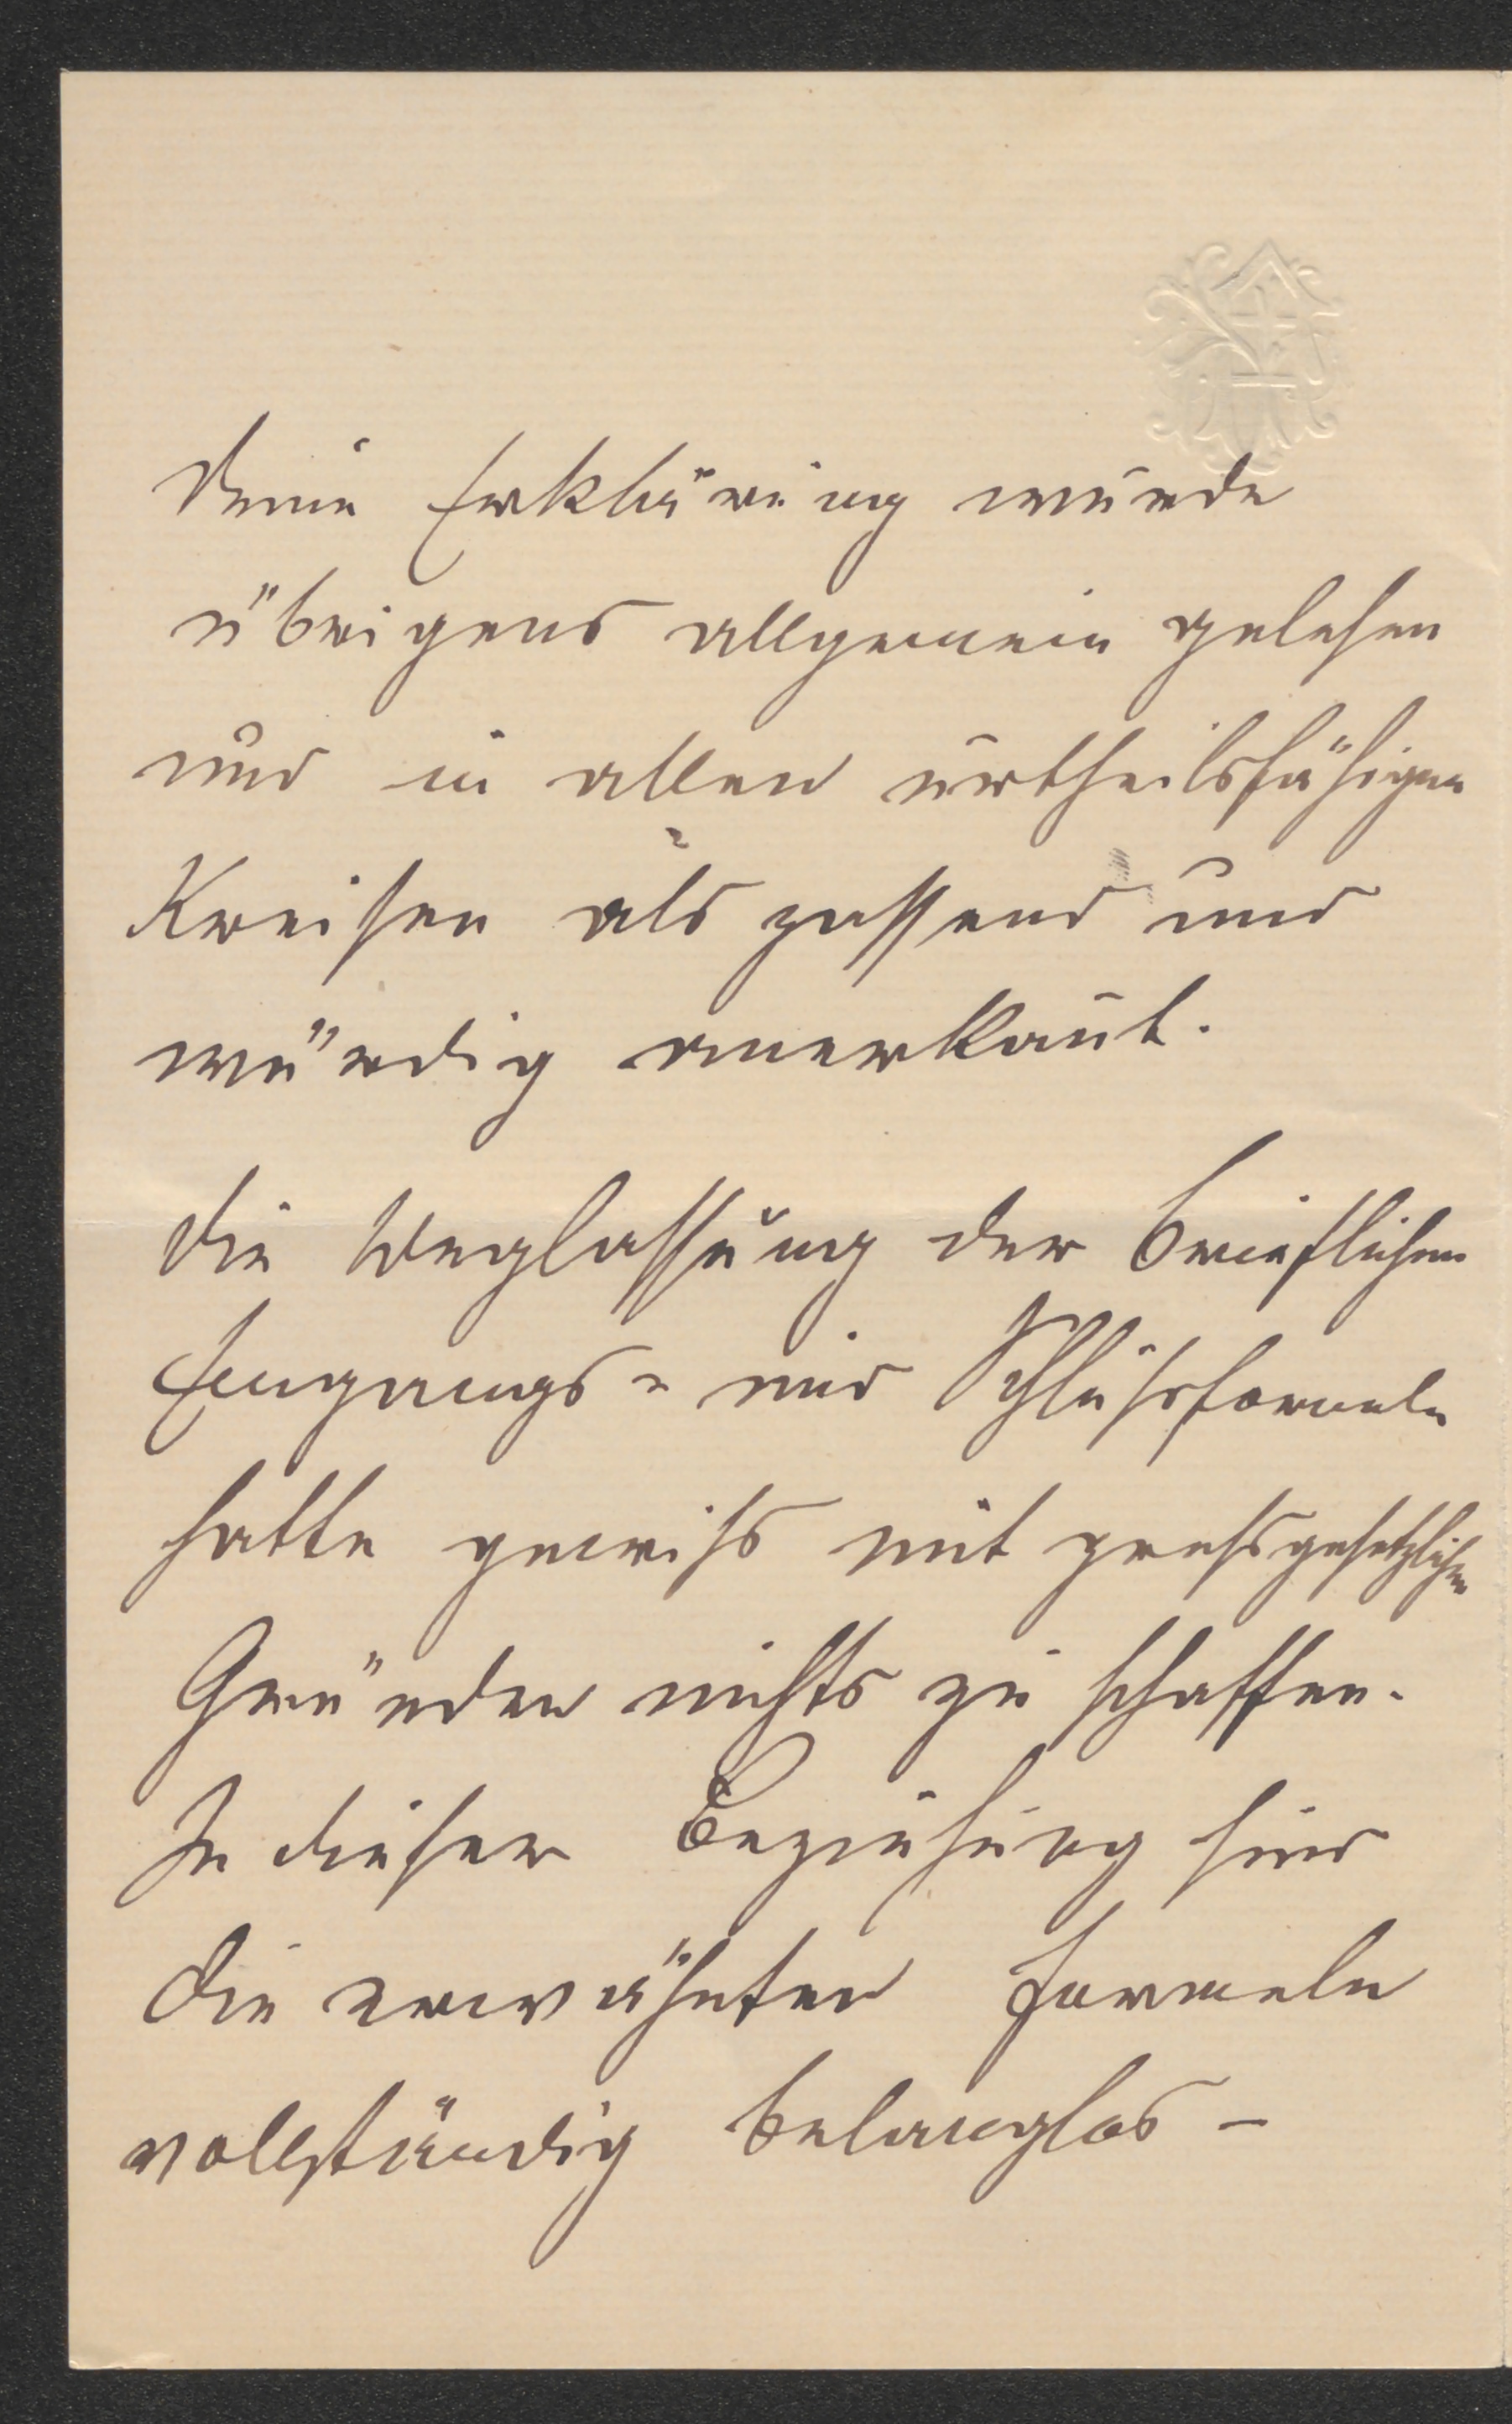 Deine Erklärung wurde
übrigens allgemein gelesen
und in allen urtheilsfähigen
Kreisen als passend und
würdig anerkannt.
Die Weglassung der brieflichen
Eingangs= und Schlußformeln
hatte gewiß mit preßgesetzlichen
Gründen nichts zu schaffen.
In dieser Beziehung sind
die erwähnten Formeln
vollständig belanglos –